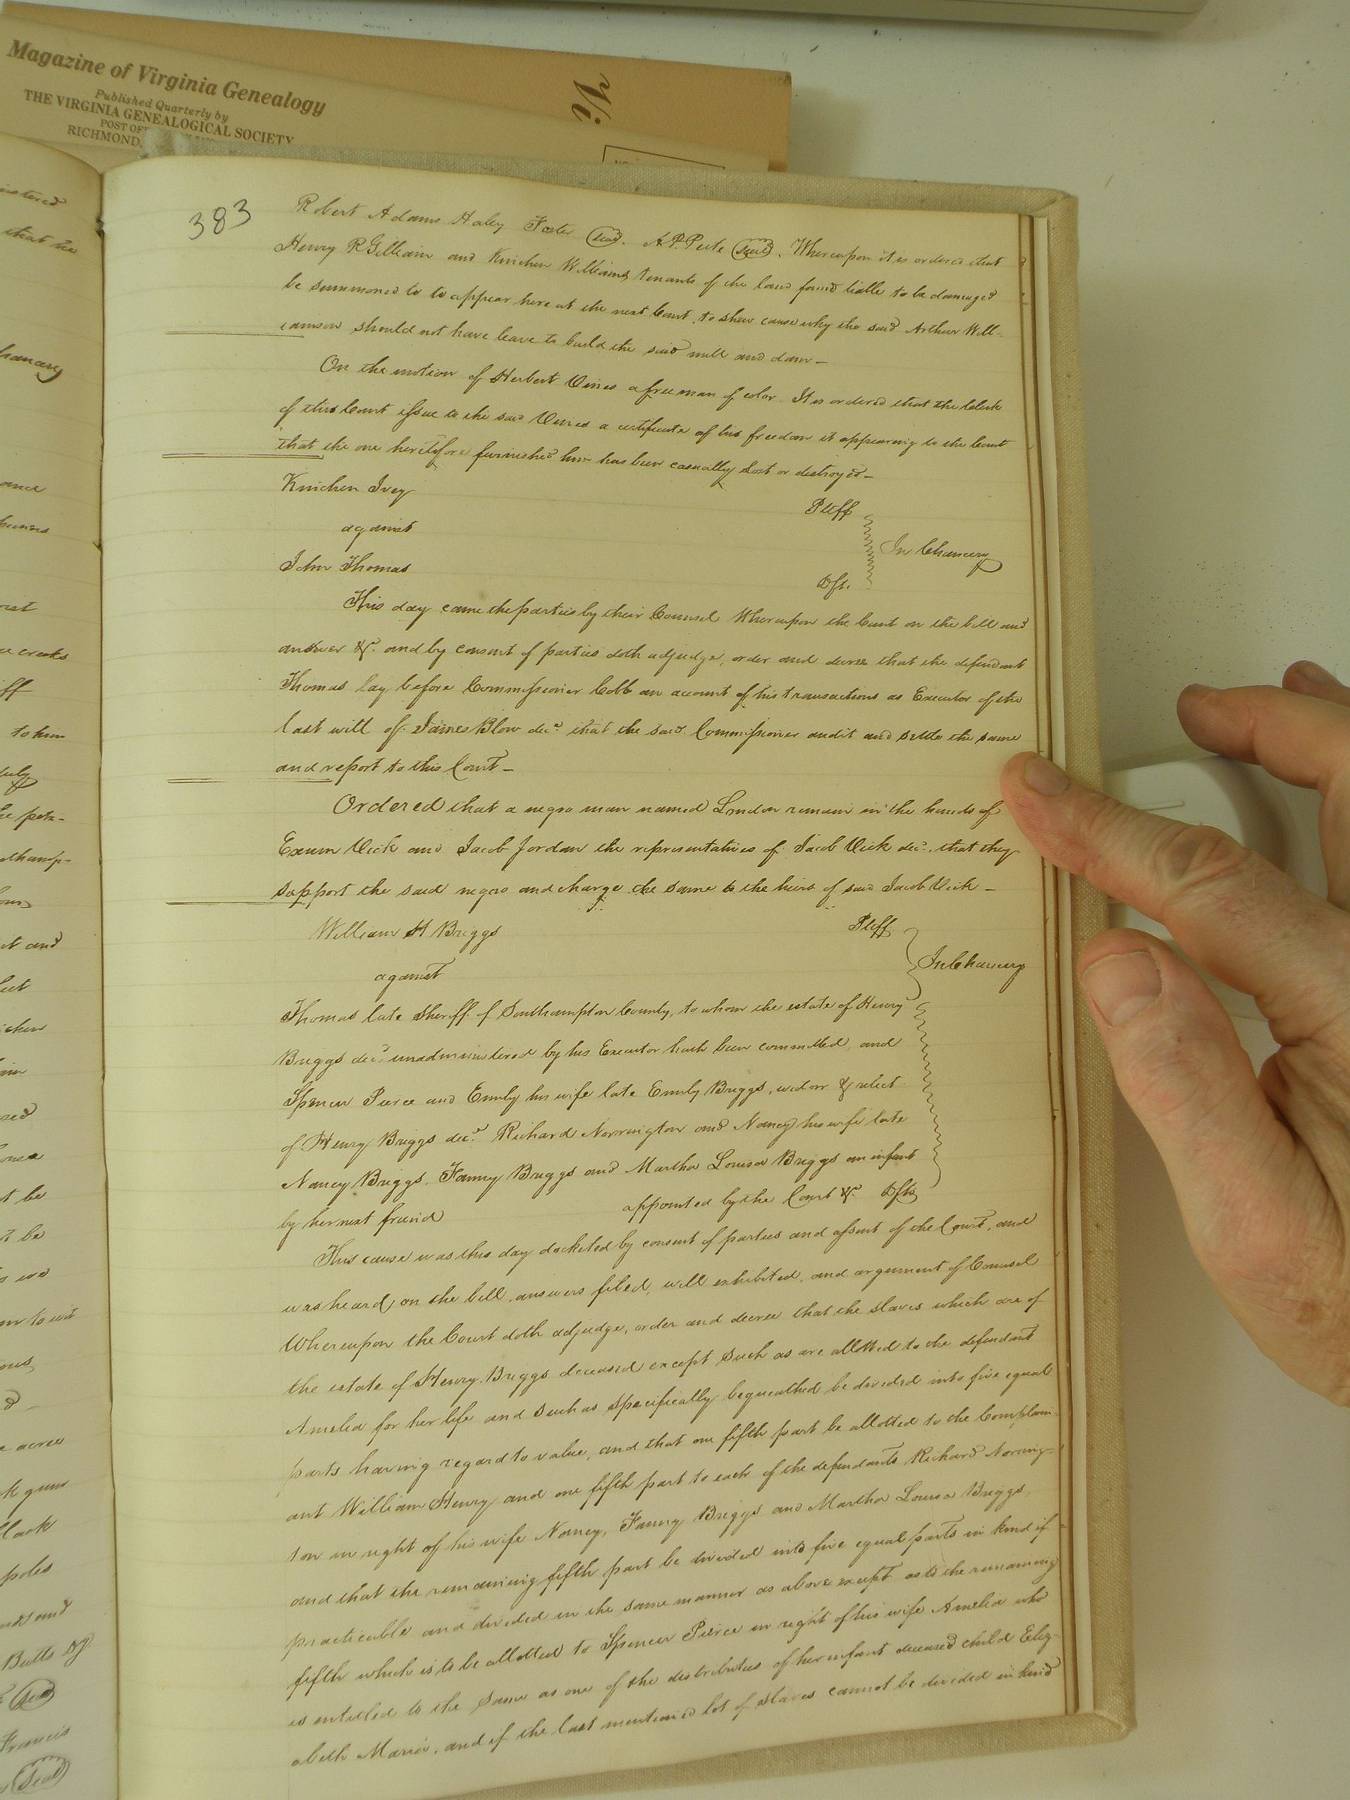 Magazine of Virginia Genealogy
Published Quarterly by
THE VIRGINIA GENEALOGICAL SOCIETY
POST OF
RICHMOND,
Vi
383
Robert Adams Haley Foster (seal). A. P. Peete (seal). Whereupon it is ordered that
Henry R Gilliam and Kinchen Williams, tenants of the land found liable to be damaged
be summoned to to appear here at the next Court, to shew cause why the said Arthur Will-
iamson should not have leave to build the said mill and dam_
On the motion of Herbert Vines a free man of color. It is ordered that the Clerk
of this Court issue to the said Vines a certificate of his freedom it appearing to the Court
that the one heretofore furnished him has been casually lost or destroyed_
Kinchen Ivey Pltff
against In Chancery
John Thomas Dft.
This day came the parties by their Counsel Whereupon the Court on the bill and
answer &c. and by consent of parties doth adjudge, order and decree that the defendant
Thomas lay before Commissioner Cobb an account of his transactions as Executor of the
last will of James Blow decd. that the said Commissioner audit and settle the same
and report to this Court_
Ordered that a negro man named London remain in the hands of
Exum Vick and Jacob Jordan the representatives of Jacob Vick decd. that they
support the said negro and charge the same to the heirs of said Jacob Vick_
William H Briggs Pltff
against In Chancery
Thomas late Sheriff of Southampton County, to whom the estate of Henry
Briggs decd. unadministered by his Executor hath been committed, and
Spencer Pierce and Emily his wife late Emily Briggs, widow & relict
of Henry Briggs decd. Richard Norrington and Nancy his wife late
Nancy Briggs. Fanny Briggs and Martha Louisa Briggs an infant
by her next friend appointed by the Court &c. Dfts
This cause was this day docketed by consent of parties and assent of the Court, and
was heard, on the bill, answers filed, will exhibited, and argument of Counsel
Whereupon the Court doth adjudge, order and decree that the slaves which are of
the estate of Henry Briggs deceased except such as are allotted to the defendant
Amelia for her life and such as specifically bequeathed be divided into five equal
parts having regard to value, and that one fifth part be allotted to the Complain-
ant William Henry and one fifth part to each of the defendants Richard Norring-
ton in right of his wife Nancy, Fanny Briggs and Martha Louisa Briggs,
and that the remaining fifth part be divided into five equal parts in kind if
practicable and divided in the same manner as above except as to the remaining
fifth which is to be allotted to Spencer Pierce in right of his wife Amelia who
is entitled to the same as one of the distributees of her infant deceased child Eliz-
abeth Maria, and if the last mentioned lot of slaves cannot be divided in kind